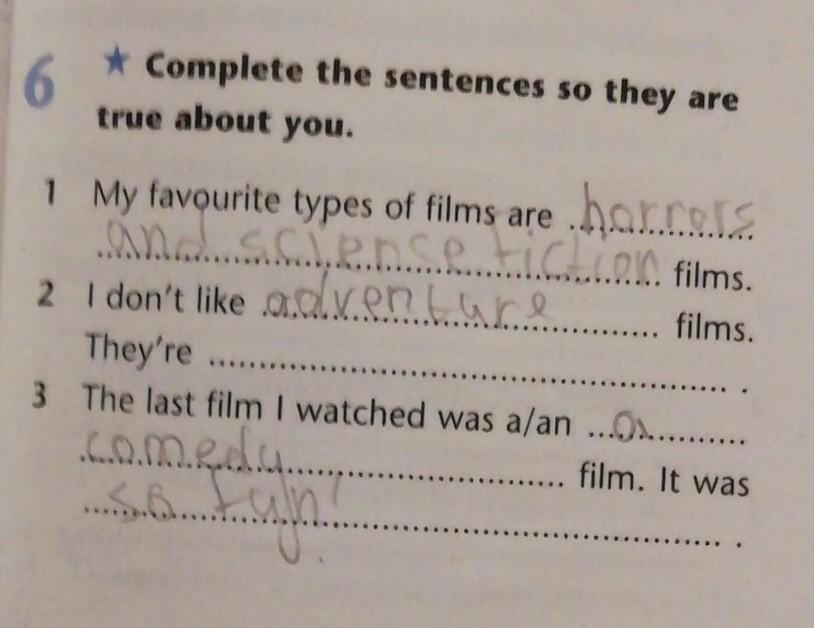 6 ★ Complete the sentences so they are
true about you.
1 My favourite types of films are horrors
and science fiction films.
2 I don't like adventure films.
They're .
3 The last film I watched was a/an a
comedy film. It was
so .